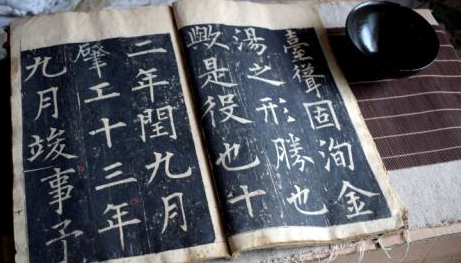 臺聳固洵金
湯之形勝也
歟是役也十
二年閏九月
肇工十三年
九月竣事予